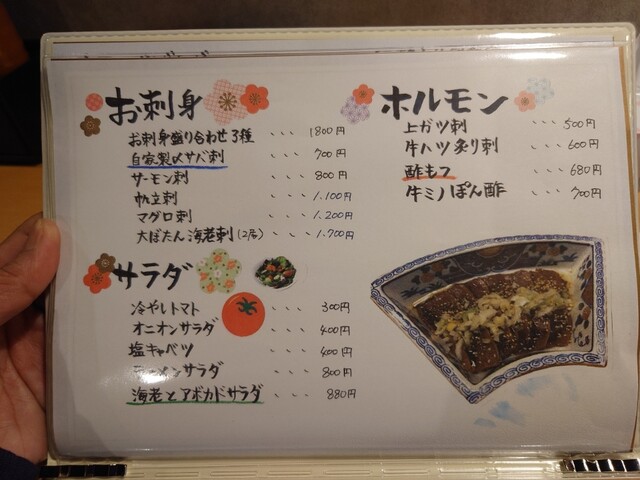 お刺身
お刺身盛り合わせ3種 ・・・ 1800円
自家製〆サバ刺 ・・・ 700円
サーモン刺 ・・・ 800円
帆立刺 ・・・ 1.100円
マグロ刺 ・・・ 1.200円
大ぼたん海老刺(2尾) ・・・ 1.700円
サラダ
冷やしトマト ・・・ 300円
オニオンサラダ ・・・ 400円
塩キャベツ ・・・ 400円
サラダ ・・・ 800円
海老とアボカドサラダ ・・・ 880円
ホルモン
上ガツ刺 ・・・ 500円
牛ハツ炙り刺 ・・・ 600円
酢もつ ・・・ 680円
牛ミノぽん酢 ・・・ 700円